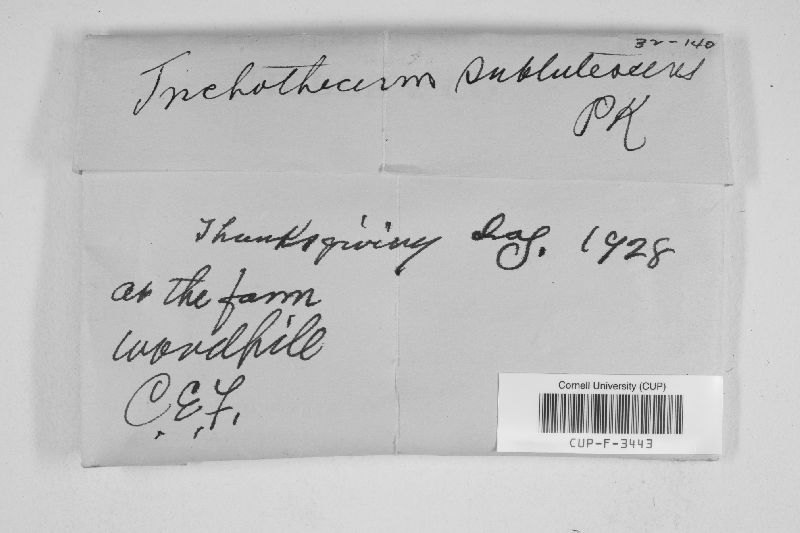 32-140
Trichothecium subluteocens
PK
Thanksgiving Day. 1928
at the farm
woodpile
C.E.F.
Cornell University (CUP)
CUP-F-3443